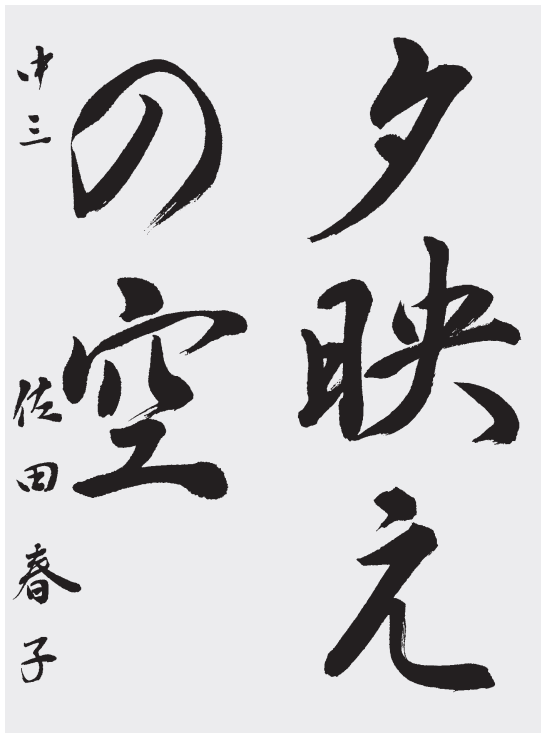 夕映え
の空
中三 佐田春子